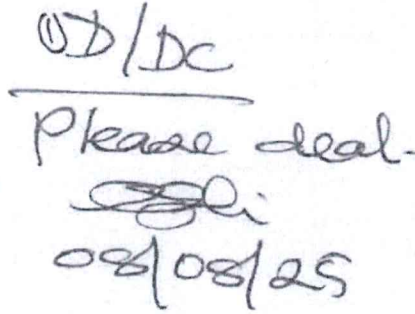 ①D/DC
Please deal.
08/08/25